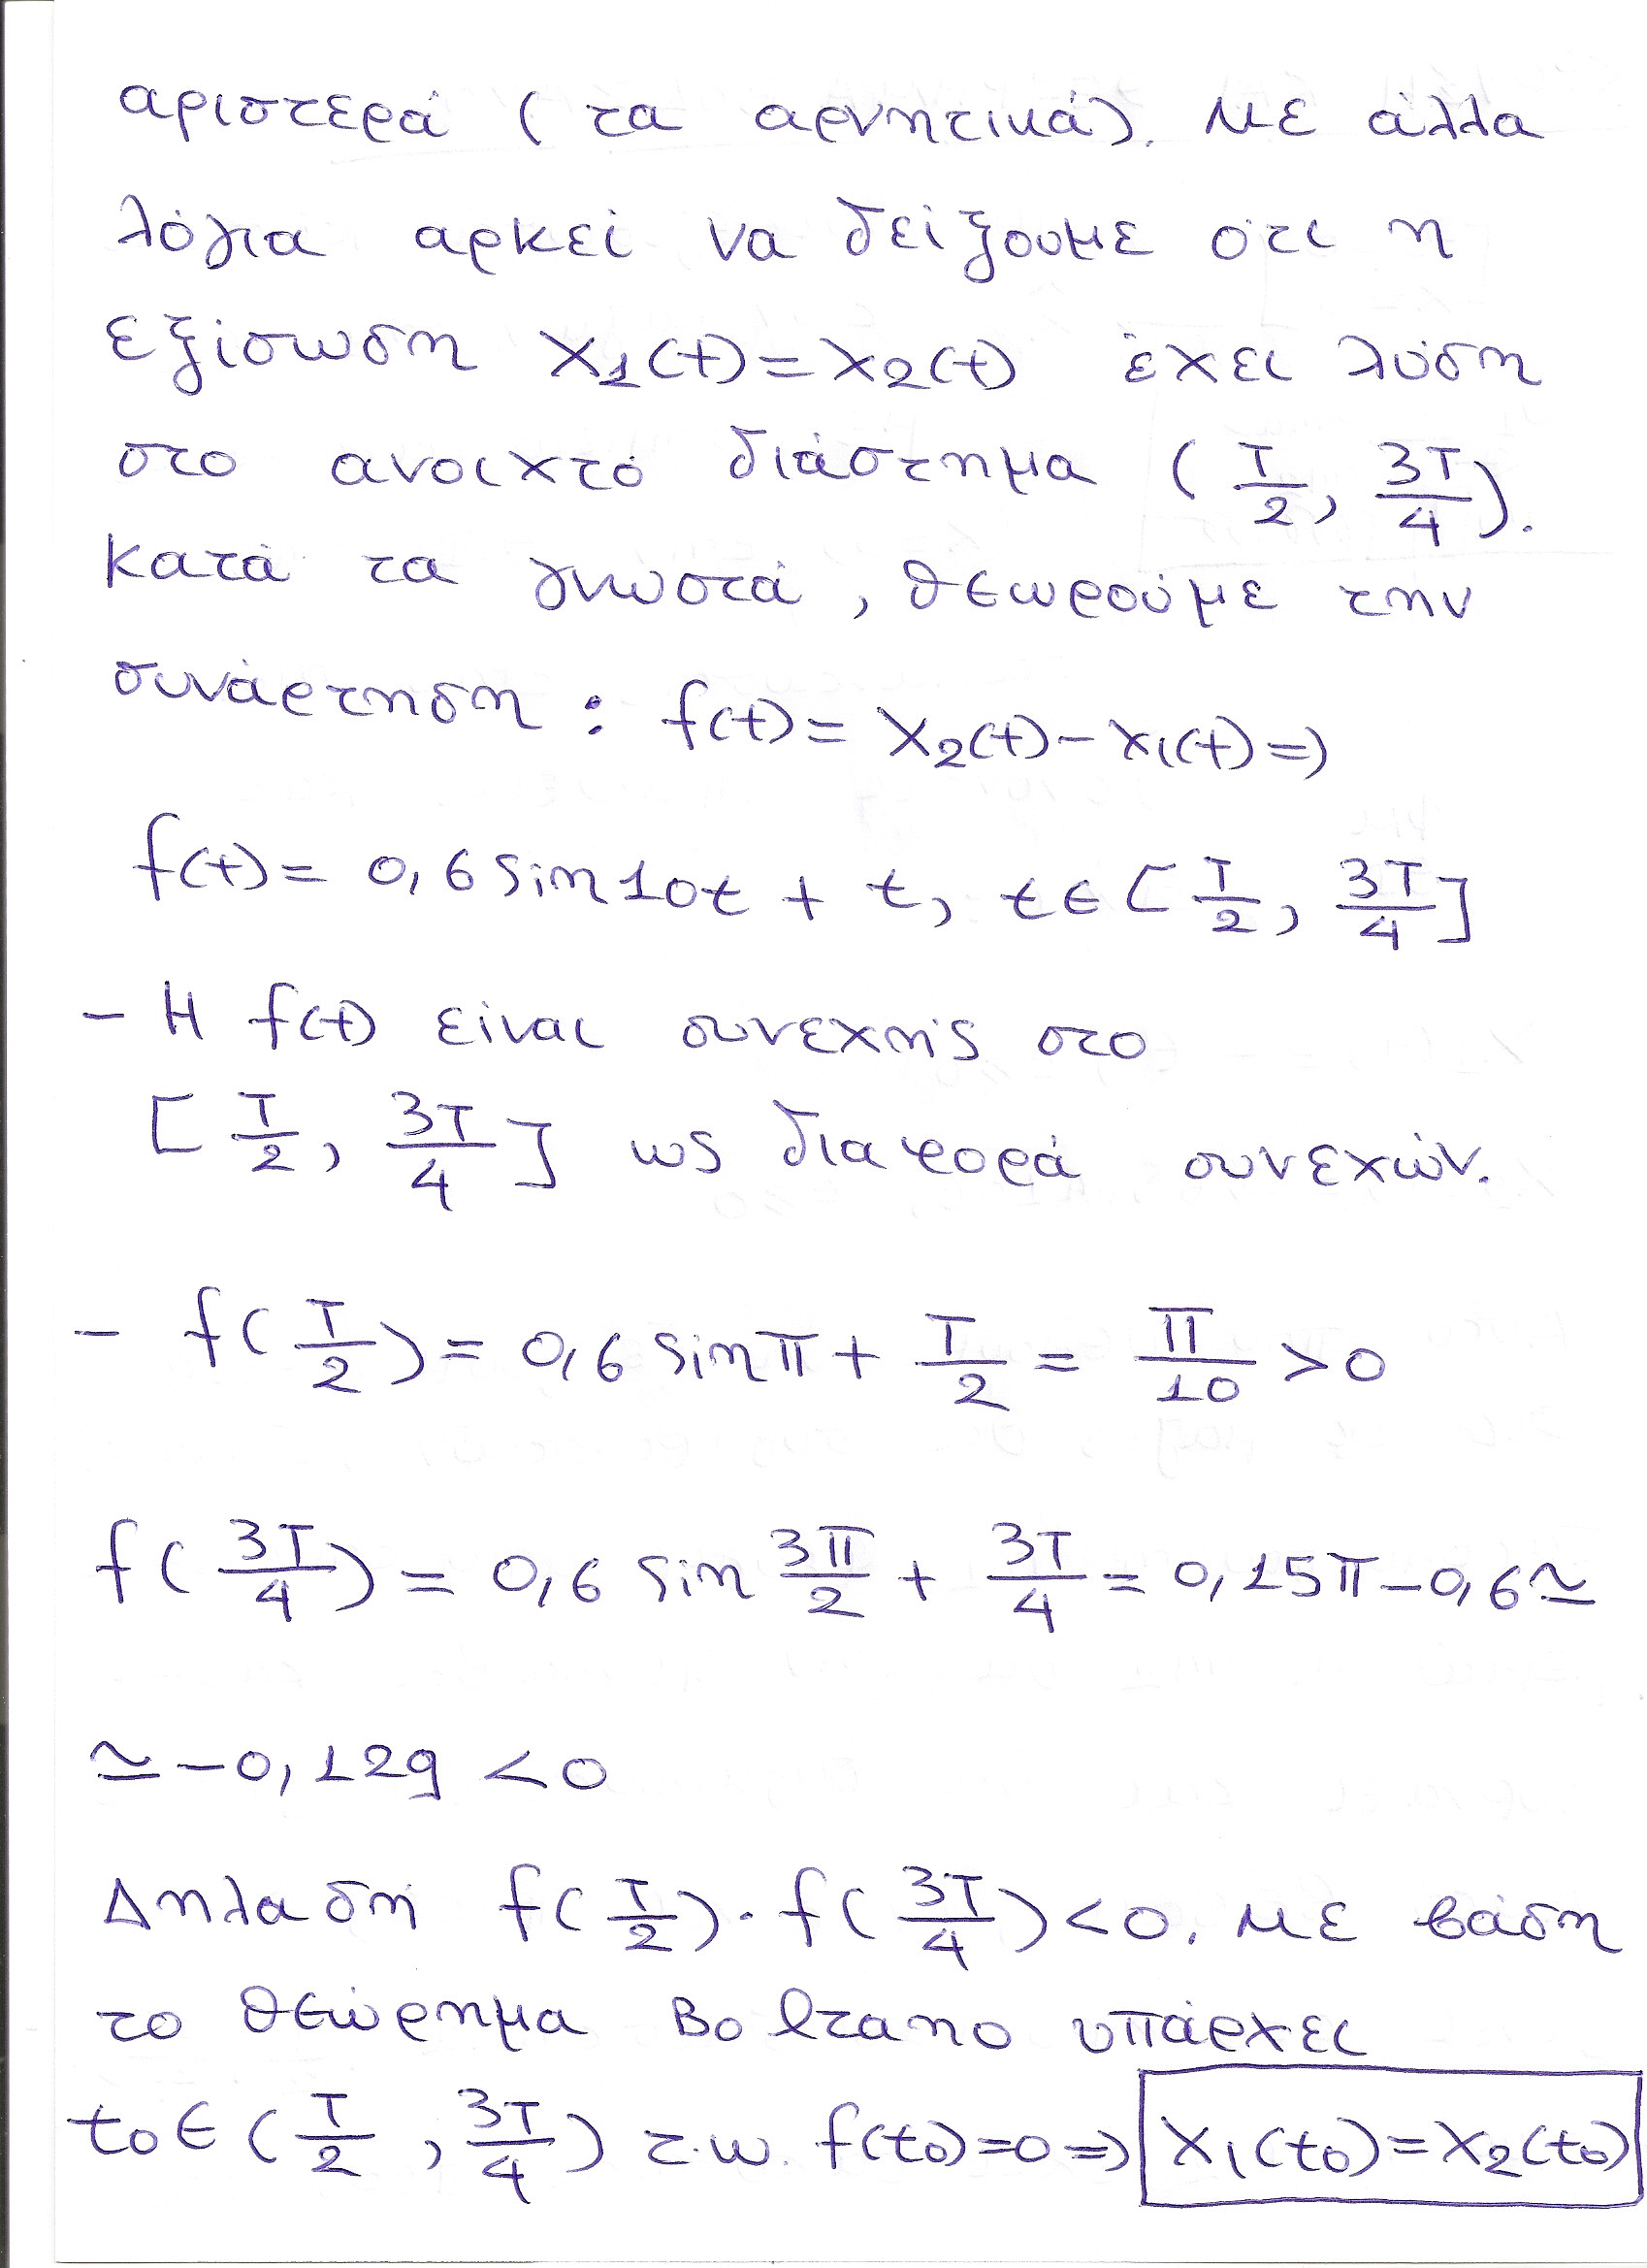 αριστερά (τα αρνητικά). Με άλλα
λόγια αρκεί να δείξουμε ότι η
εξίσωση x₁(t)=x₂(t) έχει λύση
στο ανοιχτό διάστημα (T/2, 3T/4).
Κατά τα γνωστά, θεωρούμε την
συνάρτηση : f(t)= x₂(t)-x₁(t)=>
f(t)= 0,6 sin10t + t, t∈[T/2, 3T/4]
- Η f(t) είναι συνεχής στο
[T/2, 3T/4] ως διαφορά συνεχών.
- f(T/2)= 0,6 sinπ + T/2 = π/10 >0
f(3T/4)= 0,6 sin 3π/2 + 3T/4 = 0,15π-0,6≃
≃-0,129 <0
Δηλαδή f(T/2)·f(3T/4)<0. Με βάση
το θεώρημα Bolzano υπάρχει
t₀∈(T/2, 3T/4) τ.ω. f(t₀)=0=> x₁(t₀)=x₂(t₀)